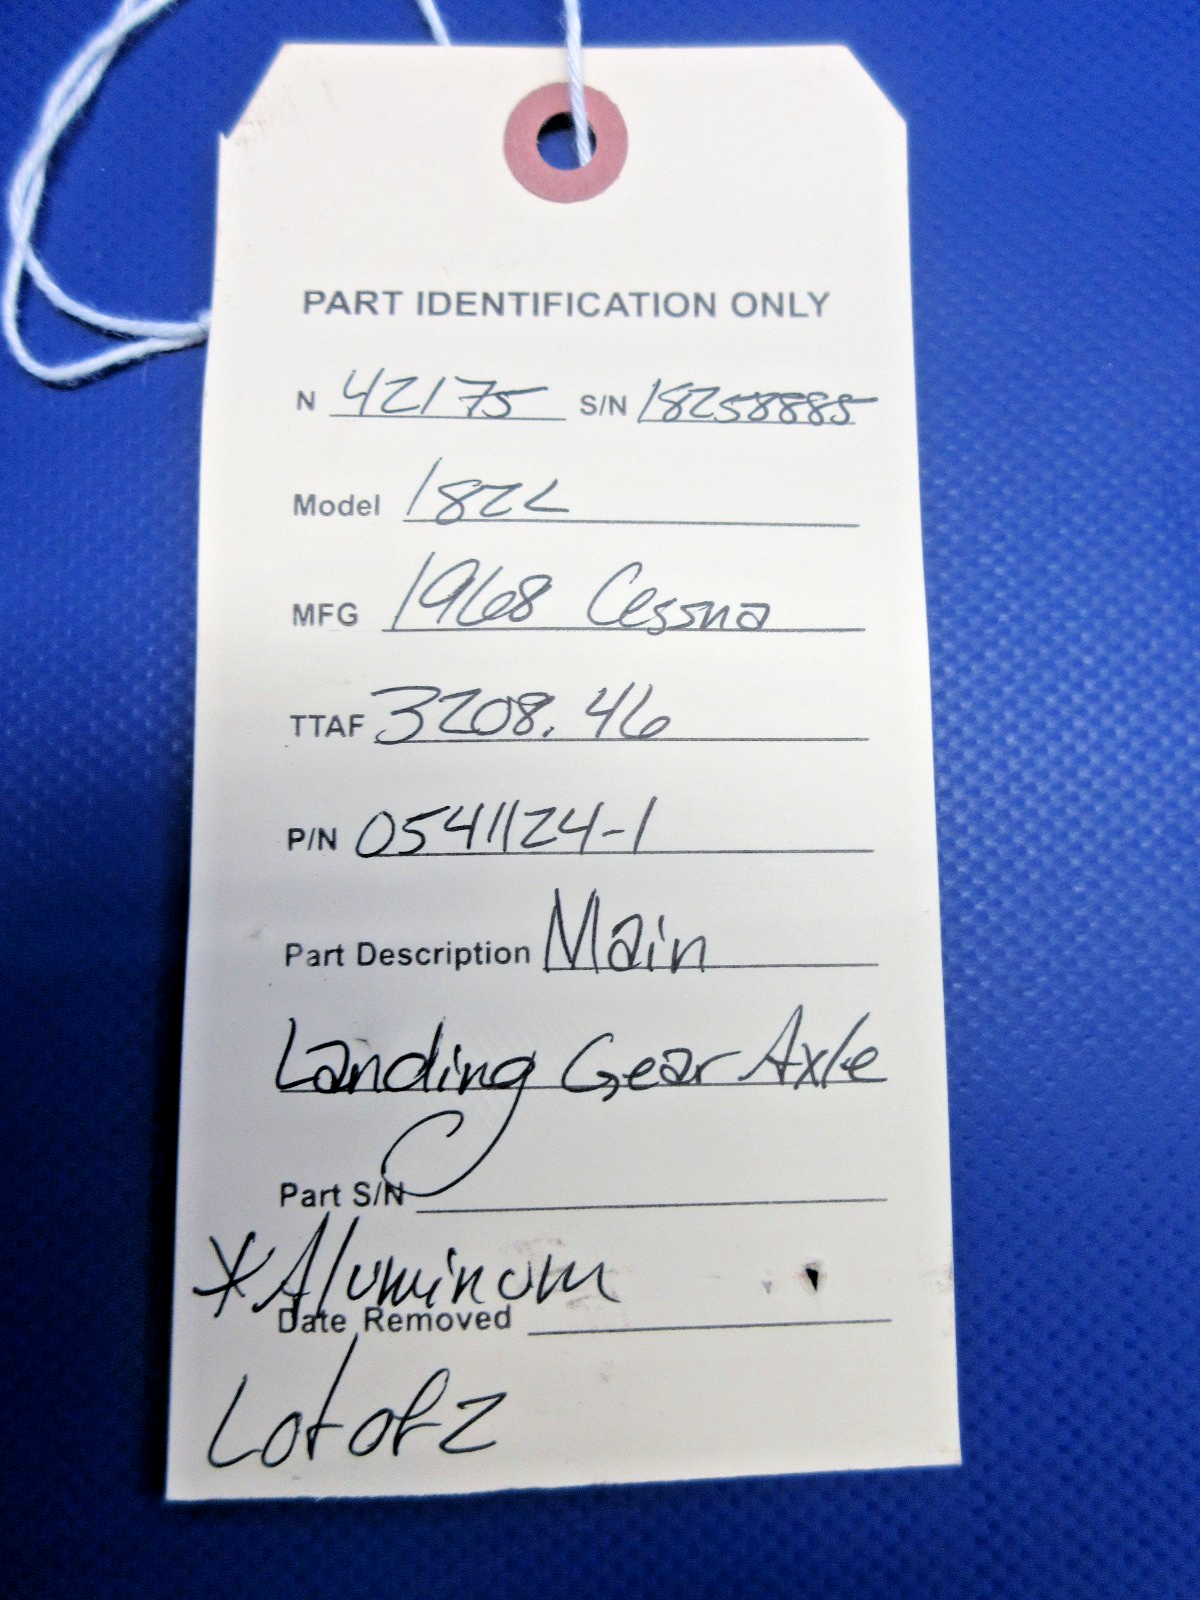 PART IDENTIFICATION ONLY
N 42175 S/N 18258885
Model 182L
MFG 1968 Cessna
TTAF 3208.46
P/N 0541124-1
Part Description Main
Landing Gear Axle
Part S/N
*Aluminum
Date Removed
Lot of 2